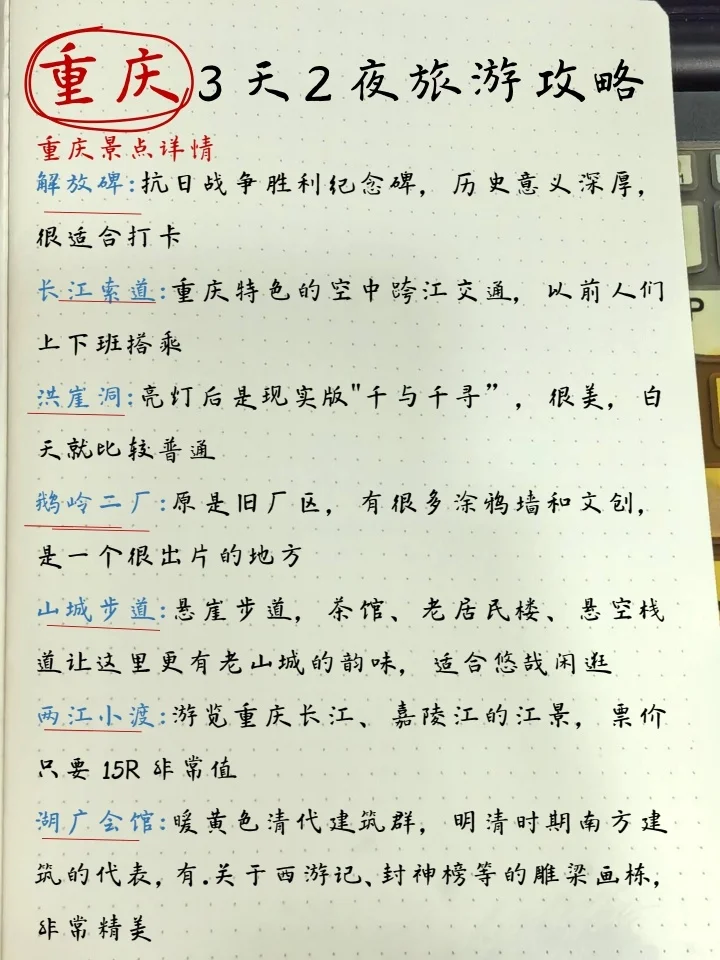 重庆3天2夜旅游攻略
重庆景点详情
解放碑:抗日战争胜利纪念碑，历史意义深厚，
很适合打卡
长江索道:重庆特色的空中跨江交通，以前人们
上下班搭乘
洪崖洞:亮灯后是现实版"千与千寻”，很美，白
天就比较普通
鹅岭二厂:原是旧厂区，有很多涂鸦墙和文创，
是一个很出片的地方
山城步道:悬崖步道，茶馆、老居民楼、悬空栈
道让这里更有老山城的韵味，适合悠哉闲逛
两江小渡:游览重庆长江、嘉陵江的江景，票价
只要 15R 非常值
湖广会馆:暖黄色清代建筑群，明清时期南方建
筑的代表，有.关于西游记、封神榜等的雕梁画栋，
非常精美